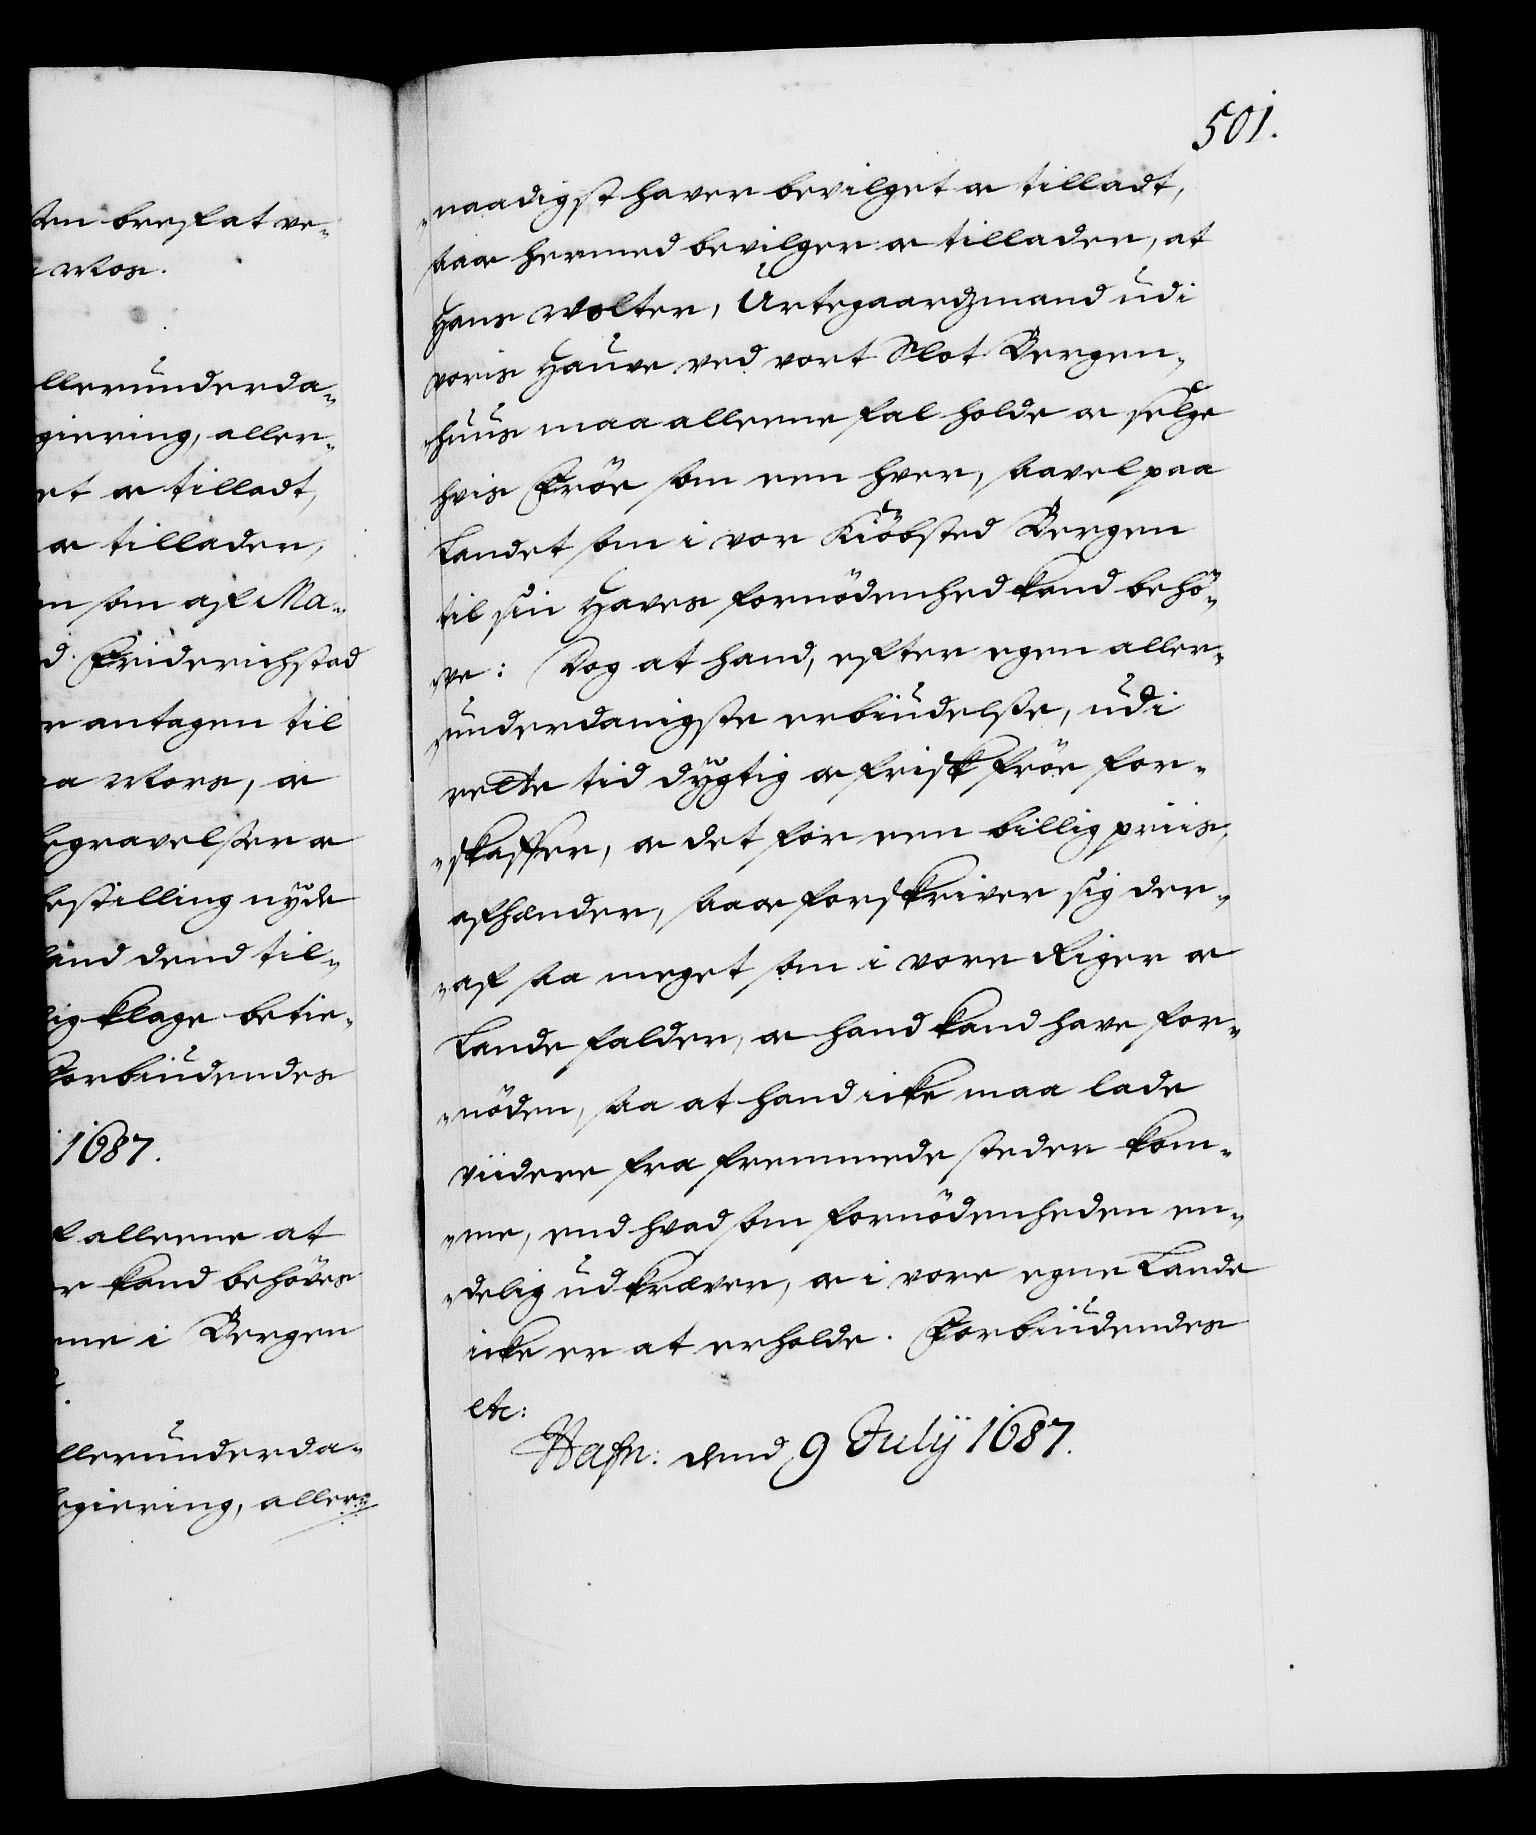 ten breflat ve-
Mos.
llerunderda-
giering, aller-
et oc tilladt,
oc tillader,
n som af Ma-
d. Friderichstad
r antagen til
a Mors, oc
egravelser oc
estilling nyde
dend til-
lig klage betie-
Forbiudendes
1687.
f alleene at
r kand behöves
ne i Bergen
llerunderda-
egiering, aller-
501.
naadigst haver bevilget oc tilladt,
saa oc hermed bevilger oc tillader, at
Hans Wolter, Urtegaardzmand udi
voris Hauve ved vort Slot Bergen-
huus maa alleene fal holde oc selge
hvis Fröe som een hver, saavel paa
Landet som i vor Kiöbsted Bergen
til sin Haves fornödenhed kand behö-
ve: Dog at hand, efter egen aller-
underdanigste erbiudelse, udi
rette tid dygtig oc frisk fröe for-
skaffer, oc det for een billig priis,
afhænder, saa oc forskriver sig der-
af saa meget som i vore Riger oc
Lande falder, oc hand kand have for-
nöden, saa at hand icke maa lade
viidere fra fremmede steder kom-
me, end hvad som fornödenheden en-
delig udkræver, oc i vore egne Lande
icke er at erholde. Forbiudendes
etc:
Hafn: dend 9 July 1687.